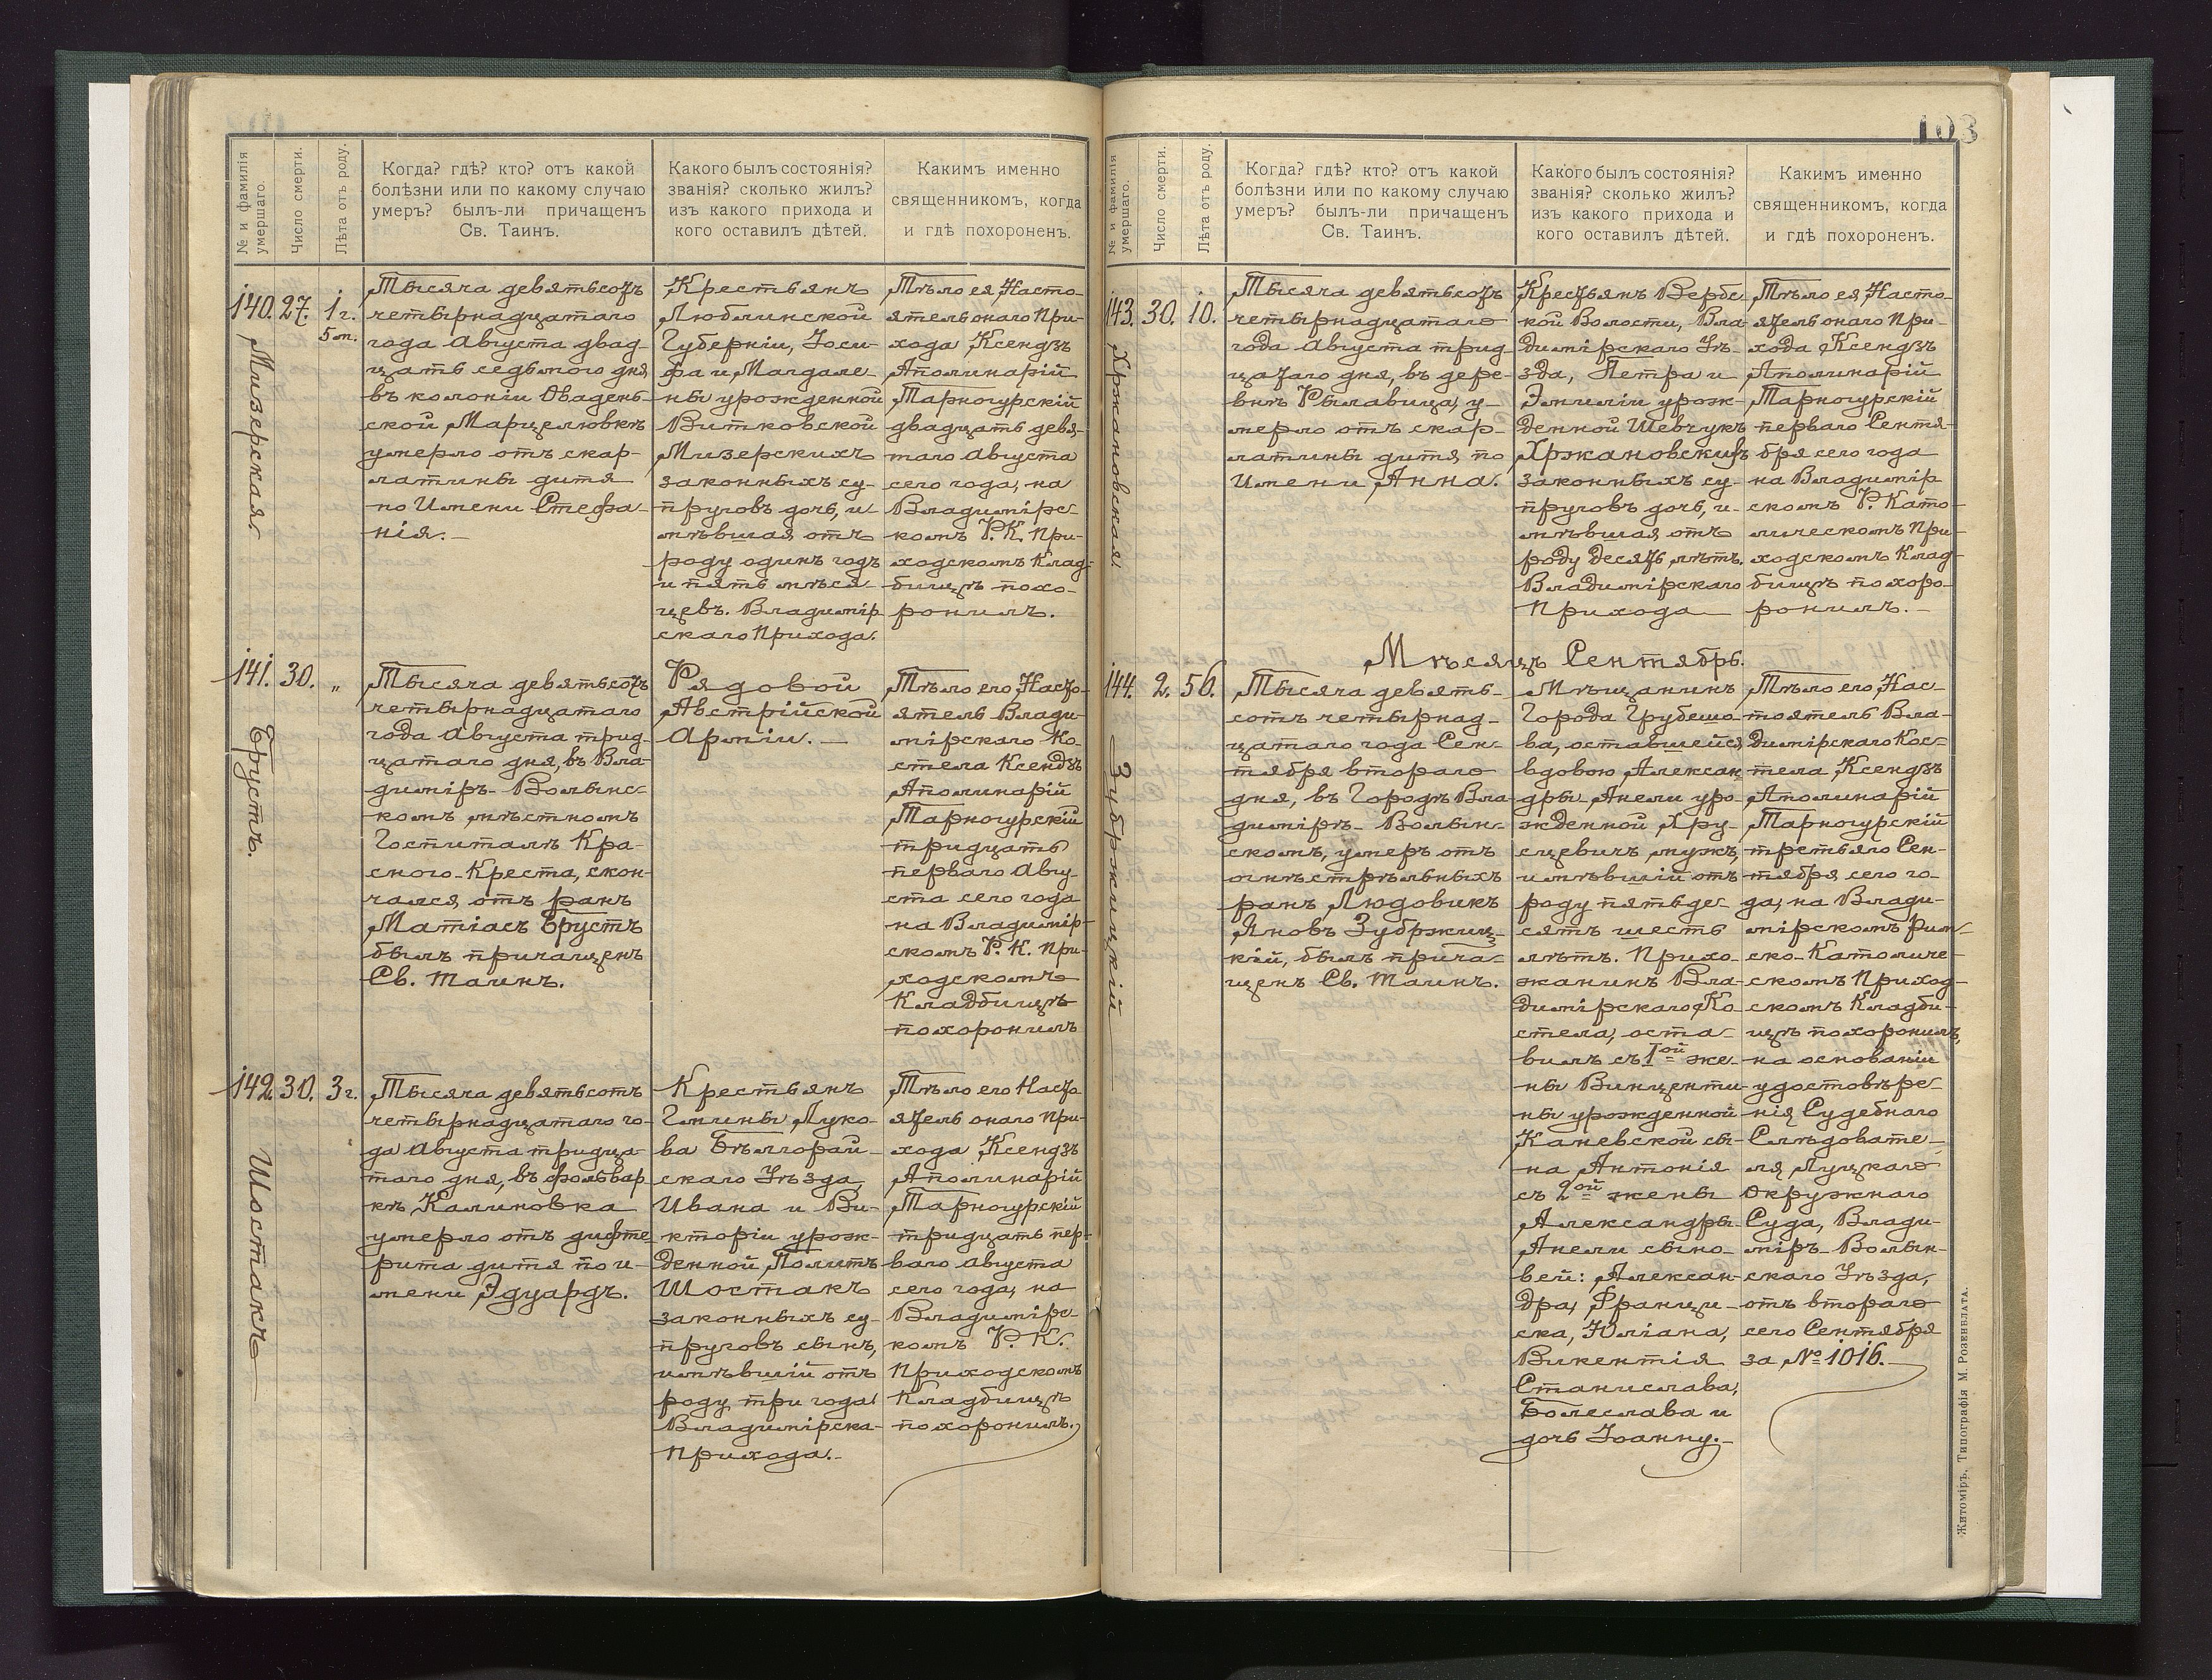 № и фамилія
умершаго.
Число смерти.
Лѣта отъ роду.
Когда? гдѣ? кто? отъ какой
болѣзни или по какому случаю
умеръ? былъ-ли причащенъ
Св. Таинъ.
Какого былъ состоянія?
званія? сколько жилъ?
изъ какого прихода и
кого оставилъ дѣтей.
Какимъ именно
священникомъ, когда
и гдѣ похороненъ.
140.
Мизерская.
27.
1 г.
5 м.
Тысяча девятьсотъ
четырнадцатаго
года Августа двад-
цать седьмого дня
въ колоніи Овадень-
ской Марцелювкѣ
умерло отъ скар-
латины дитя
по Имени Стефа-
нія.-
Крестьянъ
Люблинской
Губерніи, Іоси-
фа и Магдале-
ны урожденной
Витковской
Мизерскихъ
законныхъ су-
пруговъ дочь, и-
мѣвшая отъ
роду одинъ годъ
и пять мѣся-
цевъ. Владимір
скаго Прихода.
Тѣло ея, Насто-
ятель онаго При-
хода Ксендзъ
Аполинарій
Тарногурскій
двадцать девя-
таго Августа
сего года, на
Владимірс-
комъ Р. К. При-
ходскомъ Клад-
бищѣ похо-
ронилъ.
141.
Брустъ.
30.
"
Тысяча девятьсотъ
четырнадцатаго
года Августа трид-
цатаго дня, въ Вла-
димірѣ-Волынс-
комъ мѣстномъ
Госпиталѣ Кра-
сного-Креста, скон-
чался отъ ранъ
Матіасъ Брустъ
былъ причащенъ
Св. Таинъ.
Рядовой
Австрійской
Арміи. —
Тѣло его, Насто-
ятель Влади-
мірскаго Ко-
стела Ксендзъ
Аполинарій
Тарногурскій
тридцать
перваго Авгу-
ста сего года
на Владимір-
скомъ Р. К. При-
ходскомъ
Кладбищѣ
похоронилъ
142.
Шостакъ
30.
3 г.
Тысяча девятьсотъ
четырнадцатаго го-
да Августа тридца-
таго дня, въ фольвар
кѣ Калиновка
умерло отъ дифте-
рита дитя по и-
мени Эдуардъ.
Крестьянъ
Гмины Луко-
ва Бѣлгорай-
скаго Уѣзда,
Ивана и Ви-
кторіи урож-
денной Политъ
Шостакъ
законныхъ су-
пруговъ сынъ,
имѣвшій отъ
роду три года
Владимірска-
Прихода.-
Тѣло его Насто
ятель онаго При-
хода Ксендзъ
Аполинарій
Тарногурскій
тридцать пер-
ваго Августа
сего года, на
Владимірс-
комъ Р. К.
Приходскомъ
Кладбищѣ
похоронилъ.
103
№ и фамилія
умершаго.
Число смерти.
Лѣта отъ роду.
Когда? гдѣ? кто? отъ какой
болѣзни или по какому случаю
умеръ? былъ-ли причащенъ
Св. Таинъ.
Какого былъ состоянія?
званія? сколько жилъ?
изъ какого прихода и
кого оставилъ дѣтей.
Какимъ именно
священникомъ, когда
и гдѣ похороненъ.
143.
Хржановская
30.
10.
Тысяча девятьсотъ
четырнадцатаго
года Августа трид-
цатаго дня, въ дере-
внѣ Рылавица, у-
мерло отъ скар-
латины дитя по
Имени Анна.
Крестьянъ Вербс-
кой Волости, Вла-
димірскаго Уѣ-
зда, Петра и
Эмиліи урож-
денной Шевчукъ
Хржановскихъ
законныхъ су-
пруговъ дочь, и-
мѣвшая отъ
роду десять лѣтъ.
Владимірскаго
Прихода
Тѣло ея, Насто-
ятель онаго При-
хода Ксендзъ
Аполинарій
Тарногурскій
перваго Сентя-
бря сего года
на Владимір
скомъ Р. Като-
лическомъ При-
ходскомъ Клад-
бищѣ похоро-
ронилъ.-
Мѣсяцъ Сентябрь.
144.
Зубржицкій
2.
56.
Тысяча девять-
сотъ четырнад-
цатаго года Сен-
тября второго
дня, въ Городѣ Вла-
димірѣ-Волын-
скомъ, умеръ отъ
огнестрѣльныхъ
ранъ Людовикъ
Яновъ Зубржиц-
кій, былъ прича-
щенъ Св. Таинъ.
Мѣщанинъ
Города Грубешо-
ва, оставшейся
вдовою Алексан-
дры Анели уро-
жденной Хру-
сцевичъ мужъ,
имѣвшій отъ
роду пятьде-
сятъ шесть
лѣтъ. Прихо-
жанинъ Вла-
димірскаго Ко-
стела, оста-
вилъ съ 1ой же-
ны Винценти-
ны урожденной
Каневской сы-
на Антонія
съ 2ой жены
Александры-
Анели сыно-
вей: Алексан-
дра, Францис-
ска, Юліана,
Викентія
Станислава,
Болеслава и
дочь Іоанну.-
Тѣло его, Нас-
тоятель Вла-
димірскаго Кос-
тела, Ксендзъ
Аполинарій
Тарногурскій
третьяго Сен-
тября сего го-
да, на Влади-
мірскомъ Рим-
ско-Католиче-
скомъ Приход-
скомъ Кладби-
щѣ похоронилъ,
на основаніи
удостовѣре-
нія Судебнаго
Слѣдовате-
ля Луцкаго
Окружнаго
Суда, Влади-
міръ-Волын-
скаго Уѣзда,
отъ второго
сего Сентября
за № 1016.-
Житоміръ, Типографія М. Розенблата.